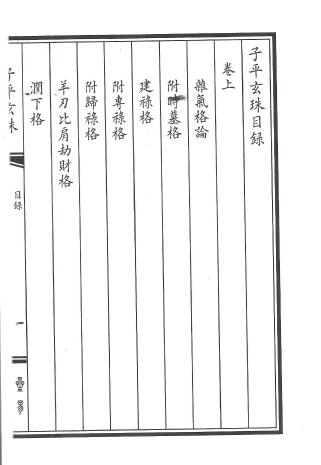 子平玄珠目錄
卷上
雜氣格論
附時墓格
建祿格
附專祿格
附歸祿格
羊刃比肩劫財格
潤下格
子平玄珠
目錄
一